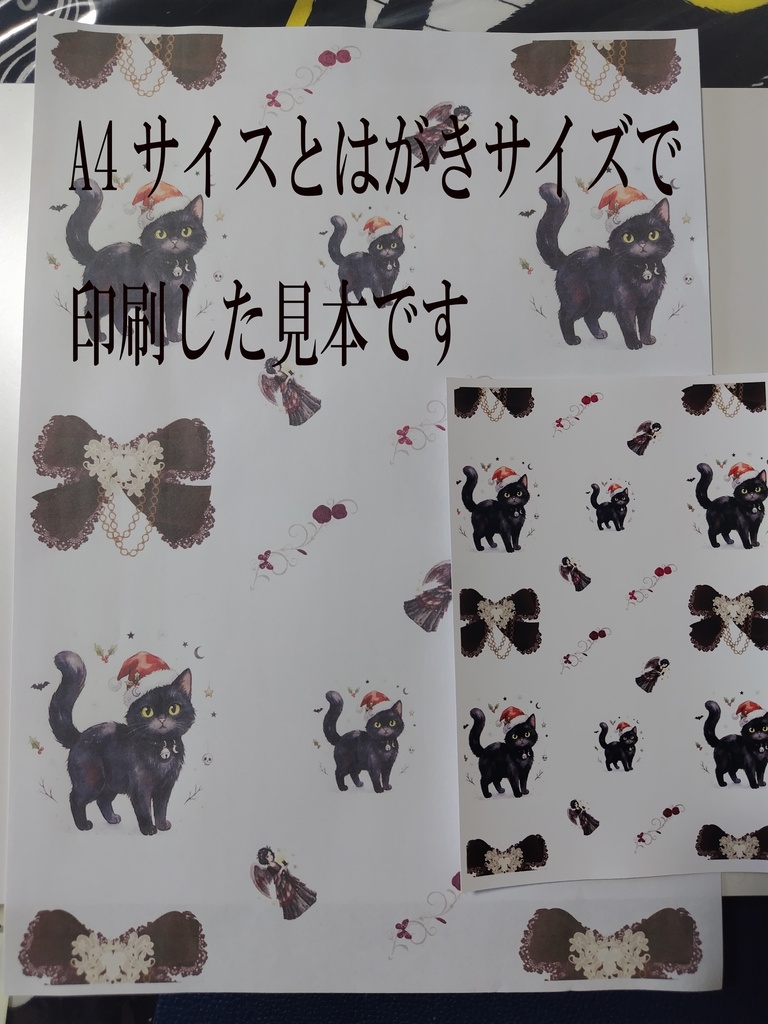 A4サイスとはがきサイズで
印刷した見本です